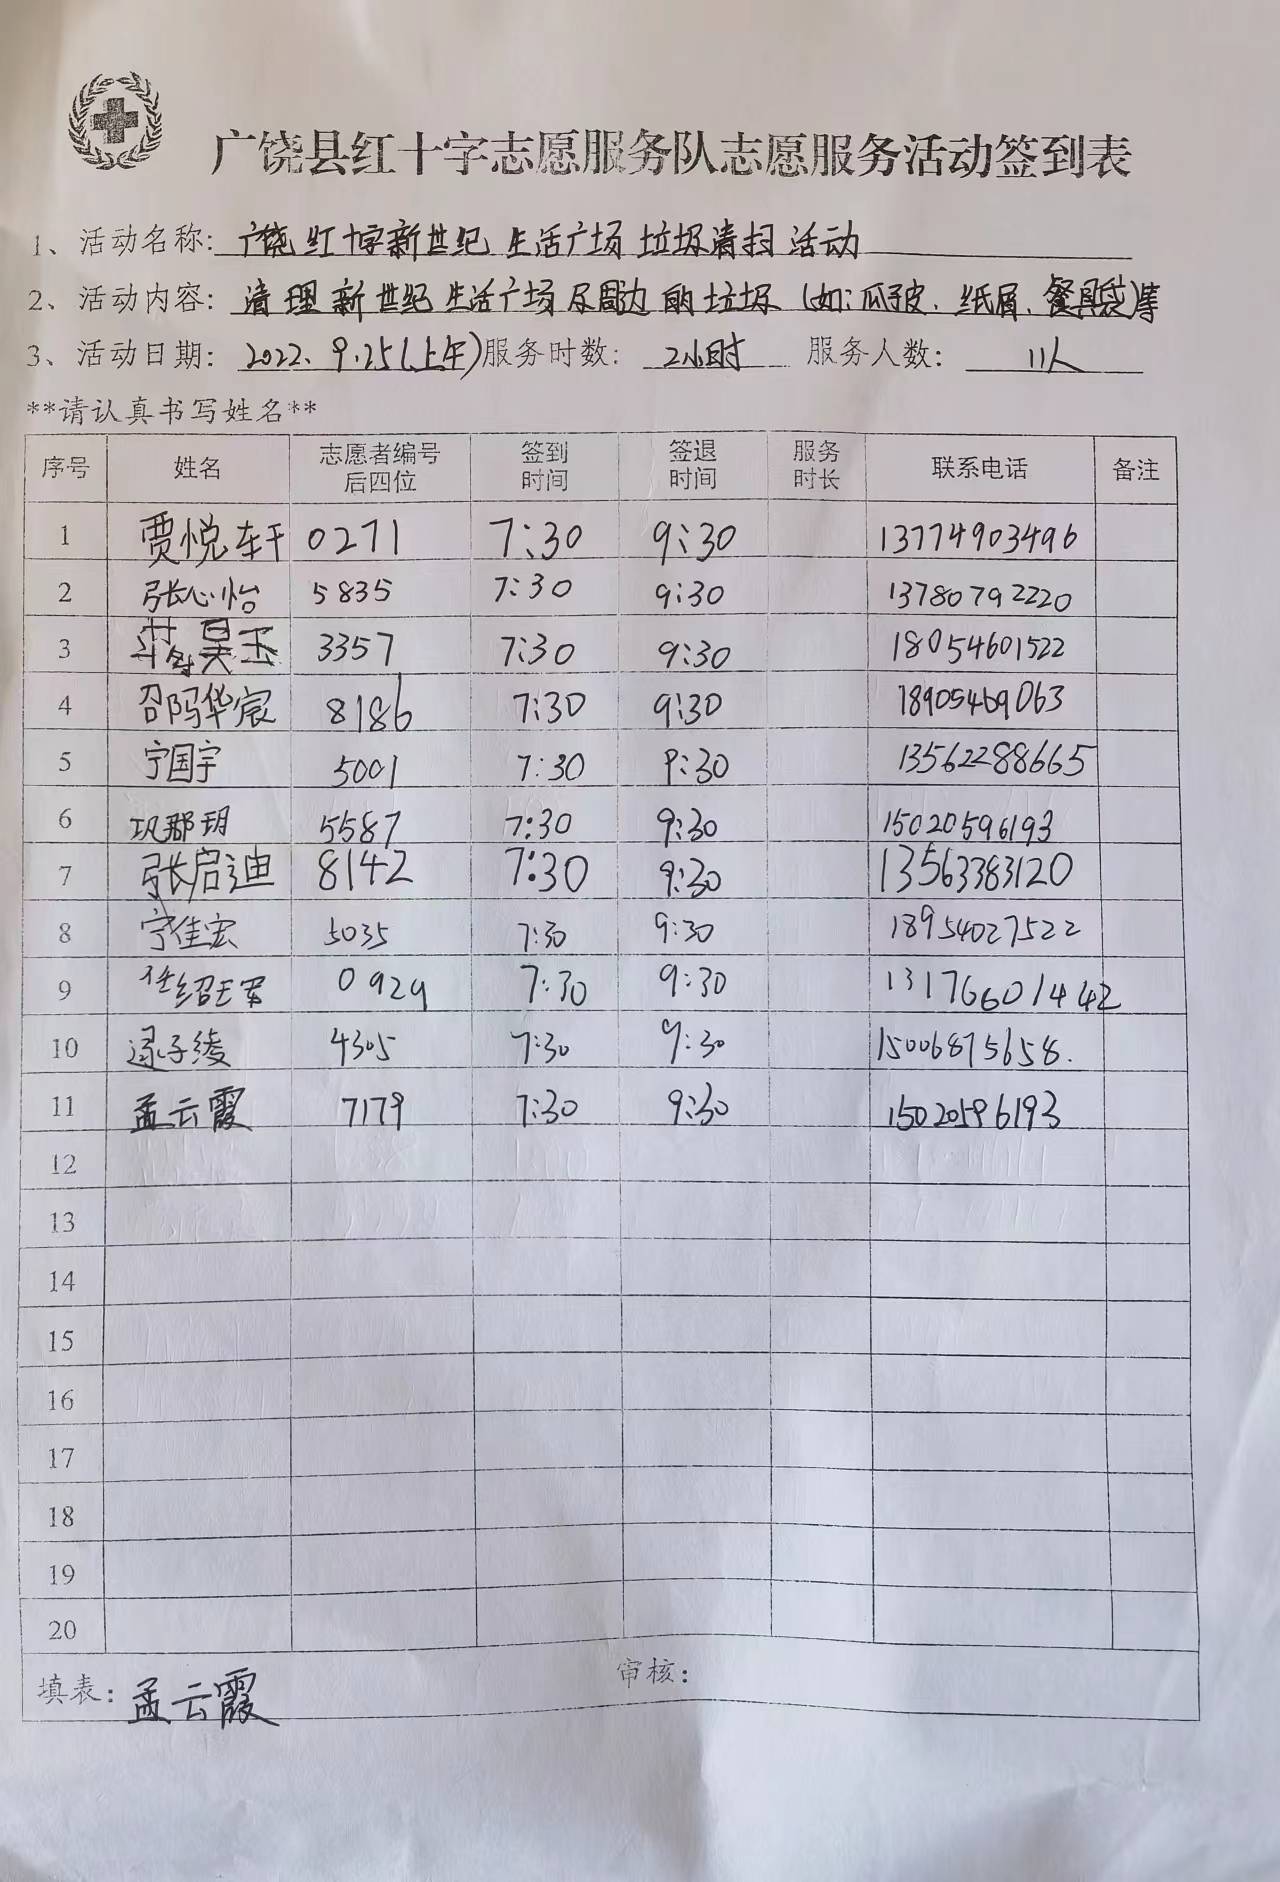 广饶县红十字志愿服务队志愿服务活动签到表
1、活动名称：广饶红十字新世纪生活广场垃圾清扫活动
2、活动内容：清理新世纪生活广场及周边的垃圾（如：瓜子皮、纸屑、餐具袋）等
3、活动日期：2022.9.25（上午）服务时数：2小时 服务人数：11人
**请认真书写姓名**
序号 姓名 志愿者编号后四位 签到时间 签退时间 服务时长 联系电话 备注
1 贾悦轩 0271 7:30 9:30 13774903496
2 张心怡 5835 7:30 9:30 13780792220
3 蒋昊玉 3357 7:30 9:30 18054601522
4 邵华宸 8186 7:30 9:30 18905469063
5 宁国宇 5001 7:30 9:30 13562288665
6 巩郡玥 5587 7:30 9:30 15020596193
7 张启迪 8142 7:30 9:30 13563383120
8 宁佳宏 5035 7:30 9:30 18954027522
9 任绍 0929 7:30 9:30 13176601442
10 逯子绫 4305 7:30 9:30 15006875658.
11 孟云霞 7179 7:30 9:30 15020596193
12
13
14
15
16
17
18
19
20
填表：孟云霞 审核：